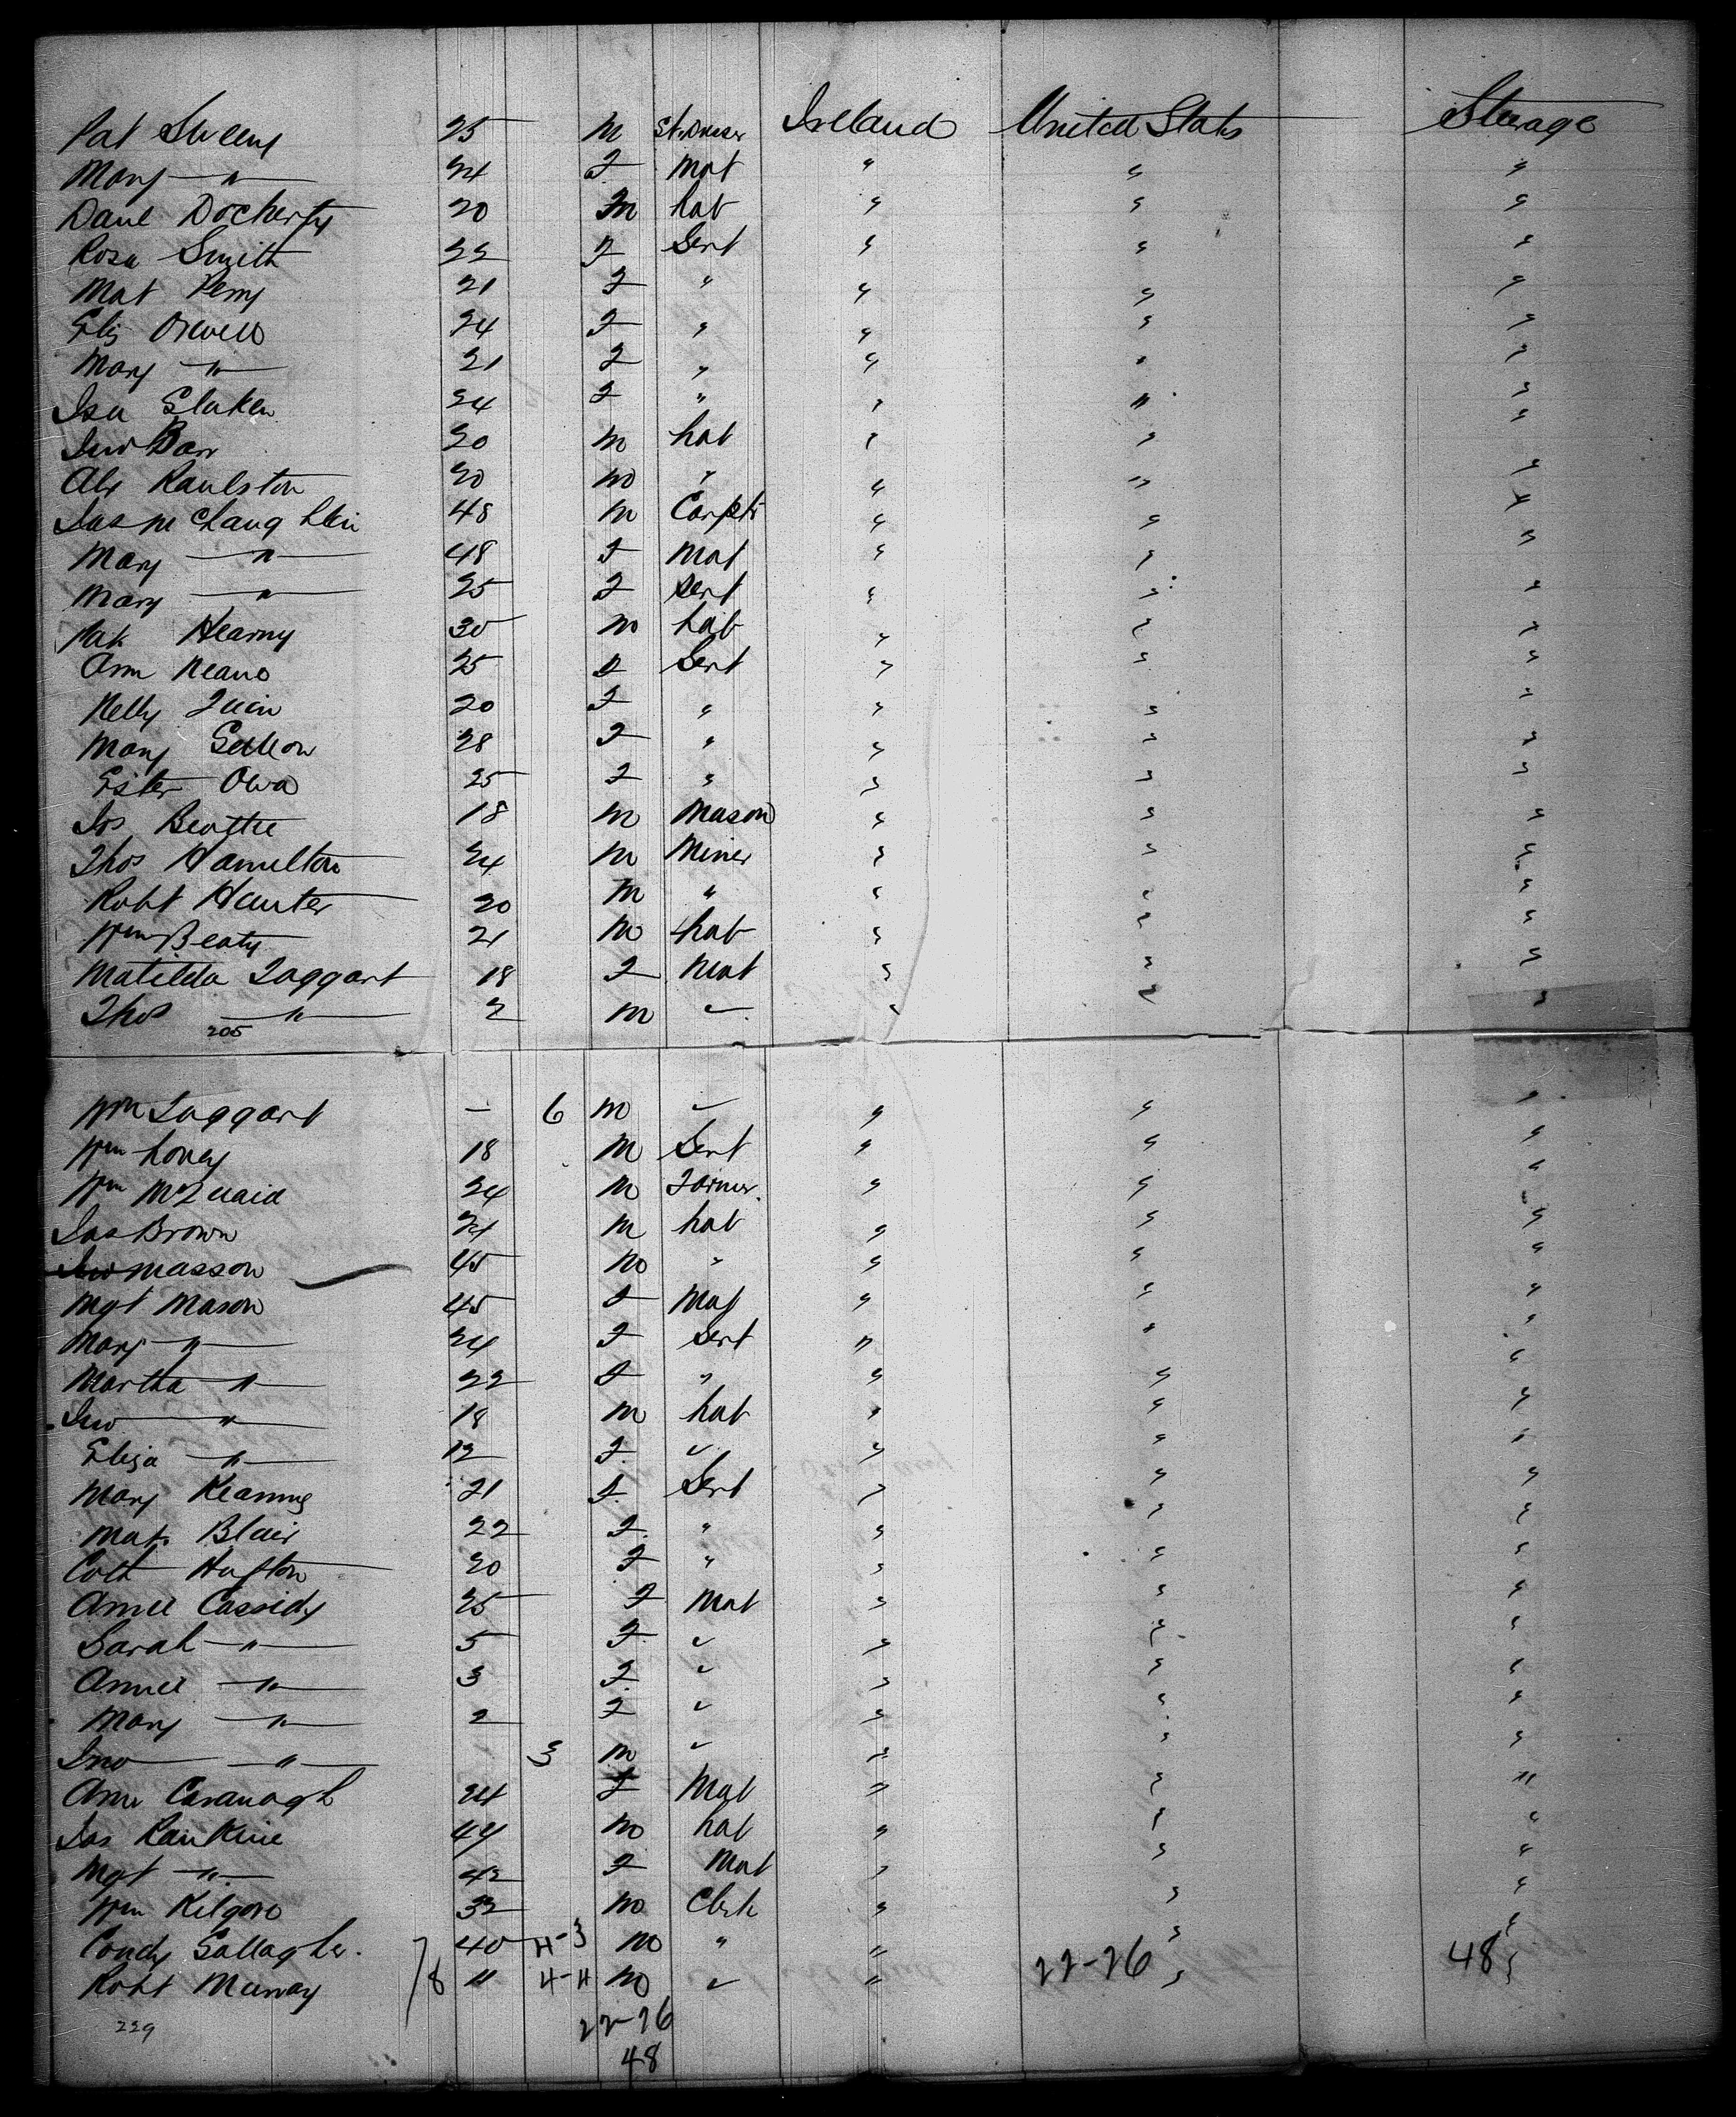 Pat Sweeny 25 M Ireland United States Steerage
Mary " 24 F Mat " " "
Danl Docherty 20 M Lab " " "
Rosa Smith 22 F Sert " " "
Mat Perry 21 F " " " "
Eliz 24 F " " " "
Mary " 21 F " " " "
Isa 24 F " " " "
Jno Barr 20 M Lab " " "
Alx Raulston 20 M " " " "
Jas McLaughlin 48 M Carptr " " "
Mary " 48 F Mat " " "
Mary " 25 F Sert " " "
Pak Hearny 30 M Lab " " "
Ann Keano 25 F Sert " " "
Nelly Quin 20 F " " " "
Mary 28 F " " " "
Ester 25 F " " " "
Jos Beattie 18 M Mason " " "
Thos Hamilton 24 M Miner " " "
Robt Hunter 20 M " " " "
Wm Beaty 21 M Lab " " "
Matilda Taggart 18 F Mat " " "
Thos " 2 M " " "
205
Wm Taggart - 6 M " " "
Wm Loney 18 M Sert " " "
Wm McQuaid 24 M Farmer " " "
Jas Brown 24 M Lab " " "
Jno Masson 45 M " " " "
Mgt Mason 45 F Mat " " "
Mary " 24 F Sert " " "
Martha " 22 F " " " "
Jno " 18 M Lab " " "
Eliza " 12 F " " "
Mary Kearning 21 F Sert " " "
Mat. Blair 22 F " " " "
Cath Hugton 20 F " " " "
Annie Cassidy 25 F Mat " " "
Sarah " 5 F " " "
Annie " 3 F " " "
Mary " 2 F " " "
Jno " 3 M " " "
Ann Cavanagh 24 F Mat " " "
Jas Rankine 44 M Lab " " "
Mgt " 42 F Mat " " "
Wm Kilgore 32 M Clerk " " "
Condy Gallagher. 40 4-3 M " " " "
Robt Murray 11 4-4 M " 22-26 " 48 "
229 22-26
48